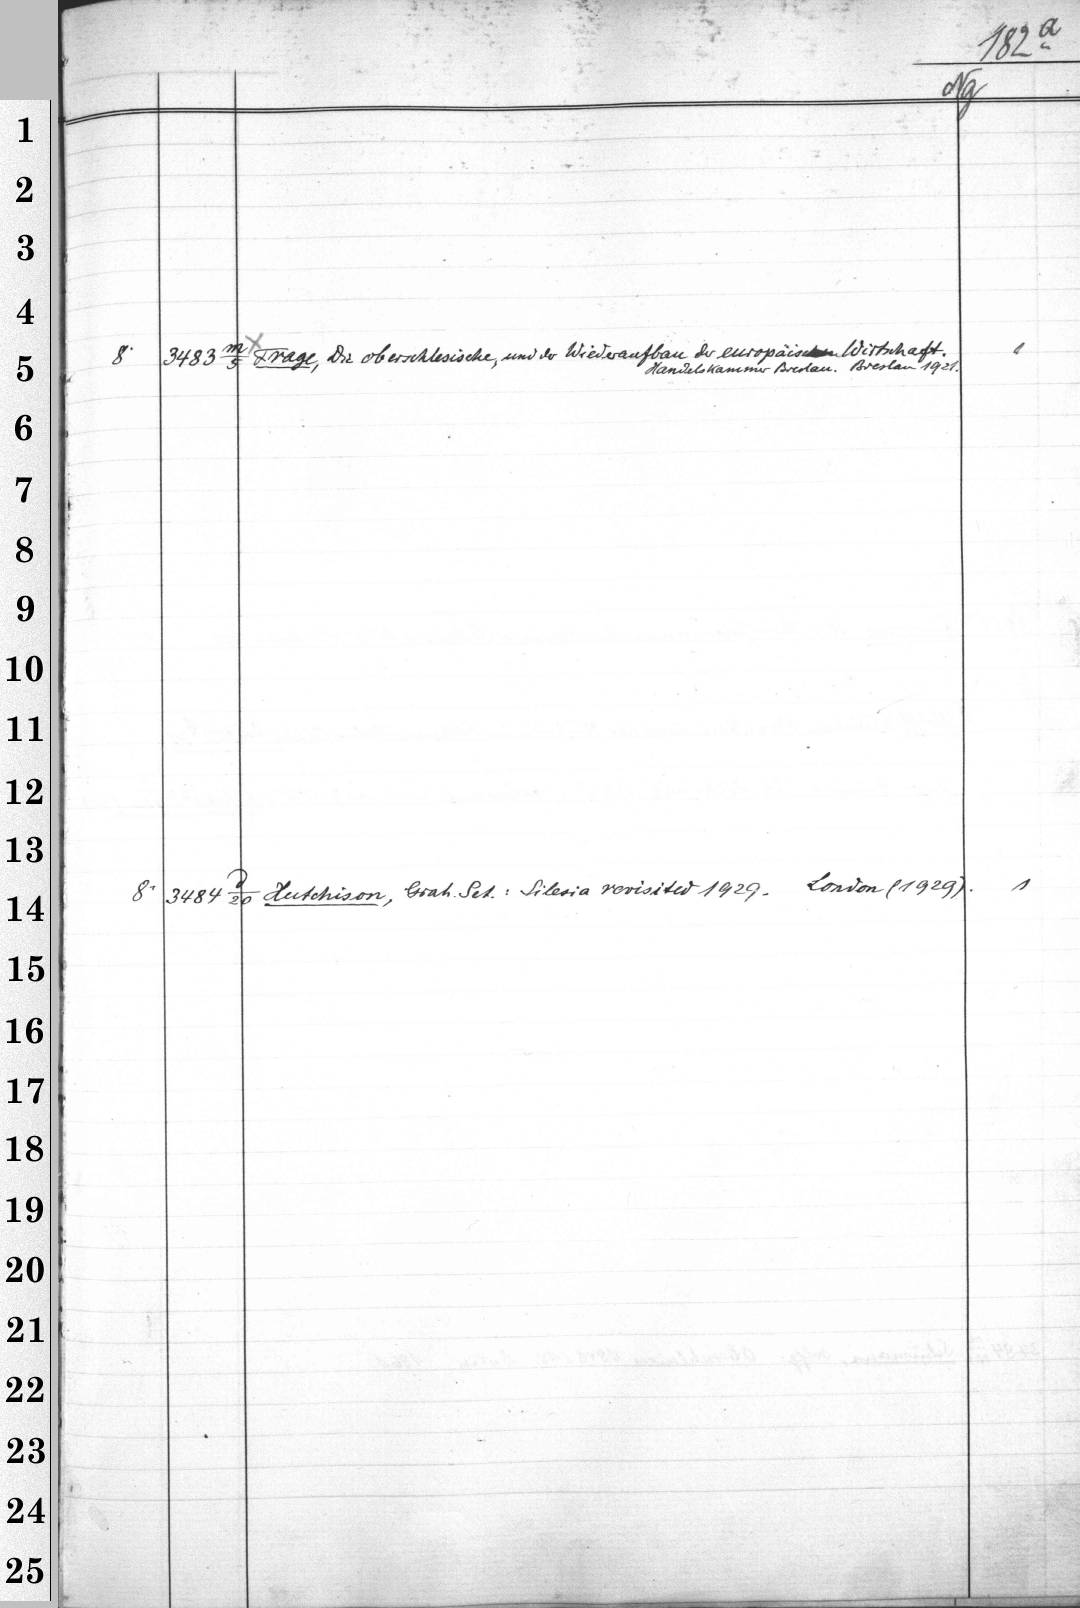 182 a
Ng
1
2
3
4
8° 3483 m/5 Frage, Die oberschlesische, und der Wiederaufbau der europäischen Wirtschaft. 1
5
Handelskammer Breslau. Breslau 1921.
6
7
8
9
10
11
12
13
8° 3484 d/20 Hutchison, Grah. Set.: Silesia revisited 1929. London (1929). 1
14
15
16
17
18
19
20
21
22
23
24
25